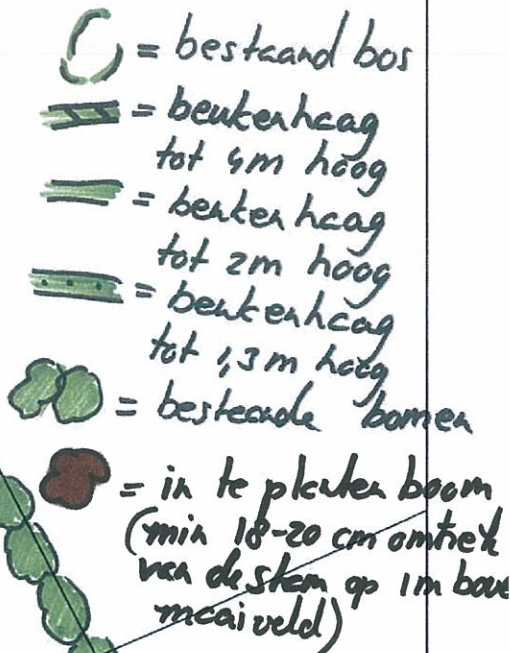 = bestaand bos
= beukenhaag
tot 4m hoog
= beukenhaag
tot 2m hoog
= beukenhaag
tot 1,3m hoog
= bestaande bomen
= in te planten boom
(min 18-20 cm omtrek
van de stam op 1m bove
maaiveld)